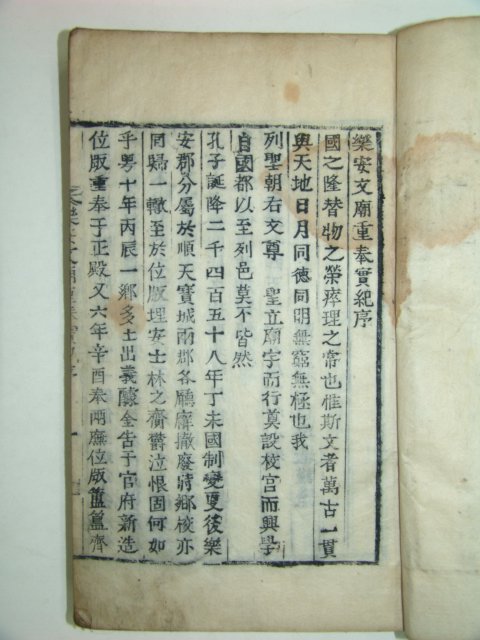 樂安文廟重奉實紀序
國之隆替物之榮瘁理之常也惟斯文者萬古一貫
與天地日月同德同明無窮無極也我
列聖朝右文尊 聖立廟宇而行奠設校宮而興學
自國都以至列邑莫不皆然
孔子誕降二千四百五十八年丁未國制變更後樂
安郡分屬於順天寶城兩郡各廳廨撤廢將鄕校亦
同歸一轍至於位版埋安士林之齎欝泣恨固何如
乎粤十年丙辰一鄕多士出義醵金告于官府新造
位版重奉于正殿又六年辛酉奉兩廡位版簠簋齊